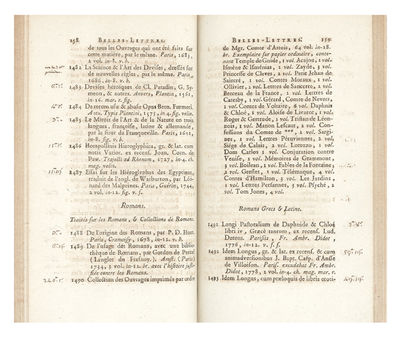 258 BELLES-LETTRES.
de tous les Ouvrages qui ont été faits sur
cette matiere, par le même. Paris, 1683,
2 vol. in-8. v. b.
1482 La Science & l'Art des Devises, dressés sur
de nouvelles règles, par le même. Paris,
1686, in-8. v. b.
1483 Devises héroïques de Cl. Paradin, G. Sy-
meon, & autres. Anvers, Plantin, 1562,
in-16. mar. r.
1484 De
1485 Le Miroir de l'Art & de la Nature en trois
langues, françoise, latine & allemande,
par le sieur de
in-8. v. b.
1486 Horapollinis Hieroglyphica, gr. & lat. cum
notis Variorum, ex recens. Joan. Corn. de
Paw. Trajecti ad Rhenum, 1727, in-4. ch.
mag.
1487 Essai sur les Hiéroglyphes des Egyptiens,
traduit de l'angl. de Warburton, par Léo-
nard des Malpeines. Paris, Guérin, 1744,
2 vol. in-12. fig. v. f.
Romans.
Traités sur les Romans, & Collections de Romans.
1488 De l'origine des Romans, par P. D. Huet.
Paris, Cramoisy, 1678, in-12. v. b.
1489 De l'usage des Romans, avec une biblio-
thèque de Romans, par Gordon de Percel
(Langlet du Fresnoy). Amst. (Paris)
1734, 2 vol. in-12. br. avec l'histoire justi-
fiée contre les Romans.
1490 Collection des Ouvrages imprimés par ordre
BELLES-LETTRES. 259
de Mgr. Comte d'Artois, 64 vol. in-18.
br. Exemplaire sur papier ordinaire, conte-
nant Temple de Gnide, 1 vol. Acajou, 1 vol.
Ismène & Isménias, 1 vol. Zayde, 3 vol.
Princesse de Cleves, 2 vol. Petit Jehan de
Saintré, 1 vol. Contes Moraux, 1 vol.
Ollivier, 2 vol. Lettres de Sancerre, 2 vol.
Berenice de la France, 1 vol. Lettres de
Catesby, 1 vol. Gérard, Comte de Nevers,
1 vol. Contes de Voltaire, 6 vol. Daphnis
& Chloé, 1 vol. Aloïse de Livarot, 1 vol.
Roger & Gertrude, 2 vol. Tribut de Léon-
nois, 2 vol. Manon Lescaut, 2 vol. Con-
fessions du Comte de ***, 2 vol. Sargi-
nes, 1 vol. Lettres Péruviennes, 2 vol.
Siège de Calais, 2 vol. Lorenzo, 1 vol.
Dom Carlos 1 vol. Conjuration contre
Venise, 1 vol. Mémoires de Grammont,
3 vol. Boileau, 2 vol. Fables de la Fontaine,
2 vol. Gresset, 1 vol. Télémaque, 4 vol.
Contes d'Hamilton, 3 vol. Les Jardins,
1 vol. Lettres Persannes, 3 vol. Psyché, 2
vol. Tom Jones, 4 vol.
Romans Grecs & Latins.
1491 Longi Pastoralium de Daphnide & Chloé
libri iv, Græcè tantum, ex recens. Lud.
Dutens. Parisiis, Fr. Ambr. Didot,
1776, in-12. v. f.
1492 Idem Longus, gr. & lat. ex recens. & cum
animadversionibus J. Bapt. Casp. d'Ansse
de Villoison. Paris. excudebat Fr. Ambr.
Didot, 1778, 2 vol. in-4. ch. mag. mar. r.
1493 Idem Longus, cum proloquiis de libris eroti-